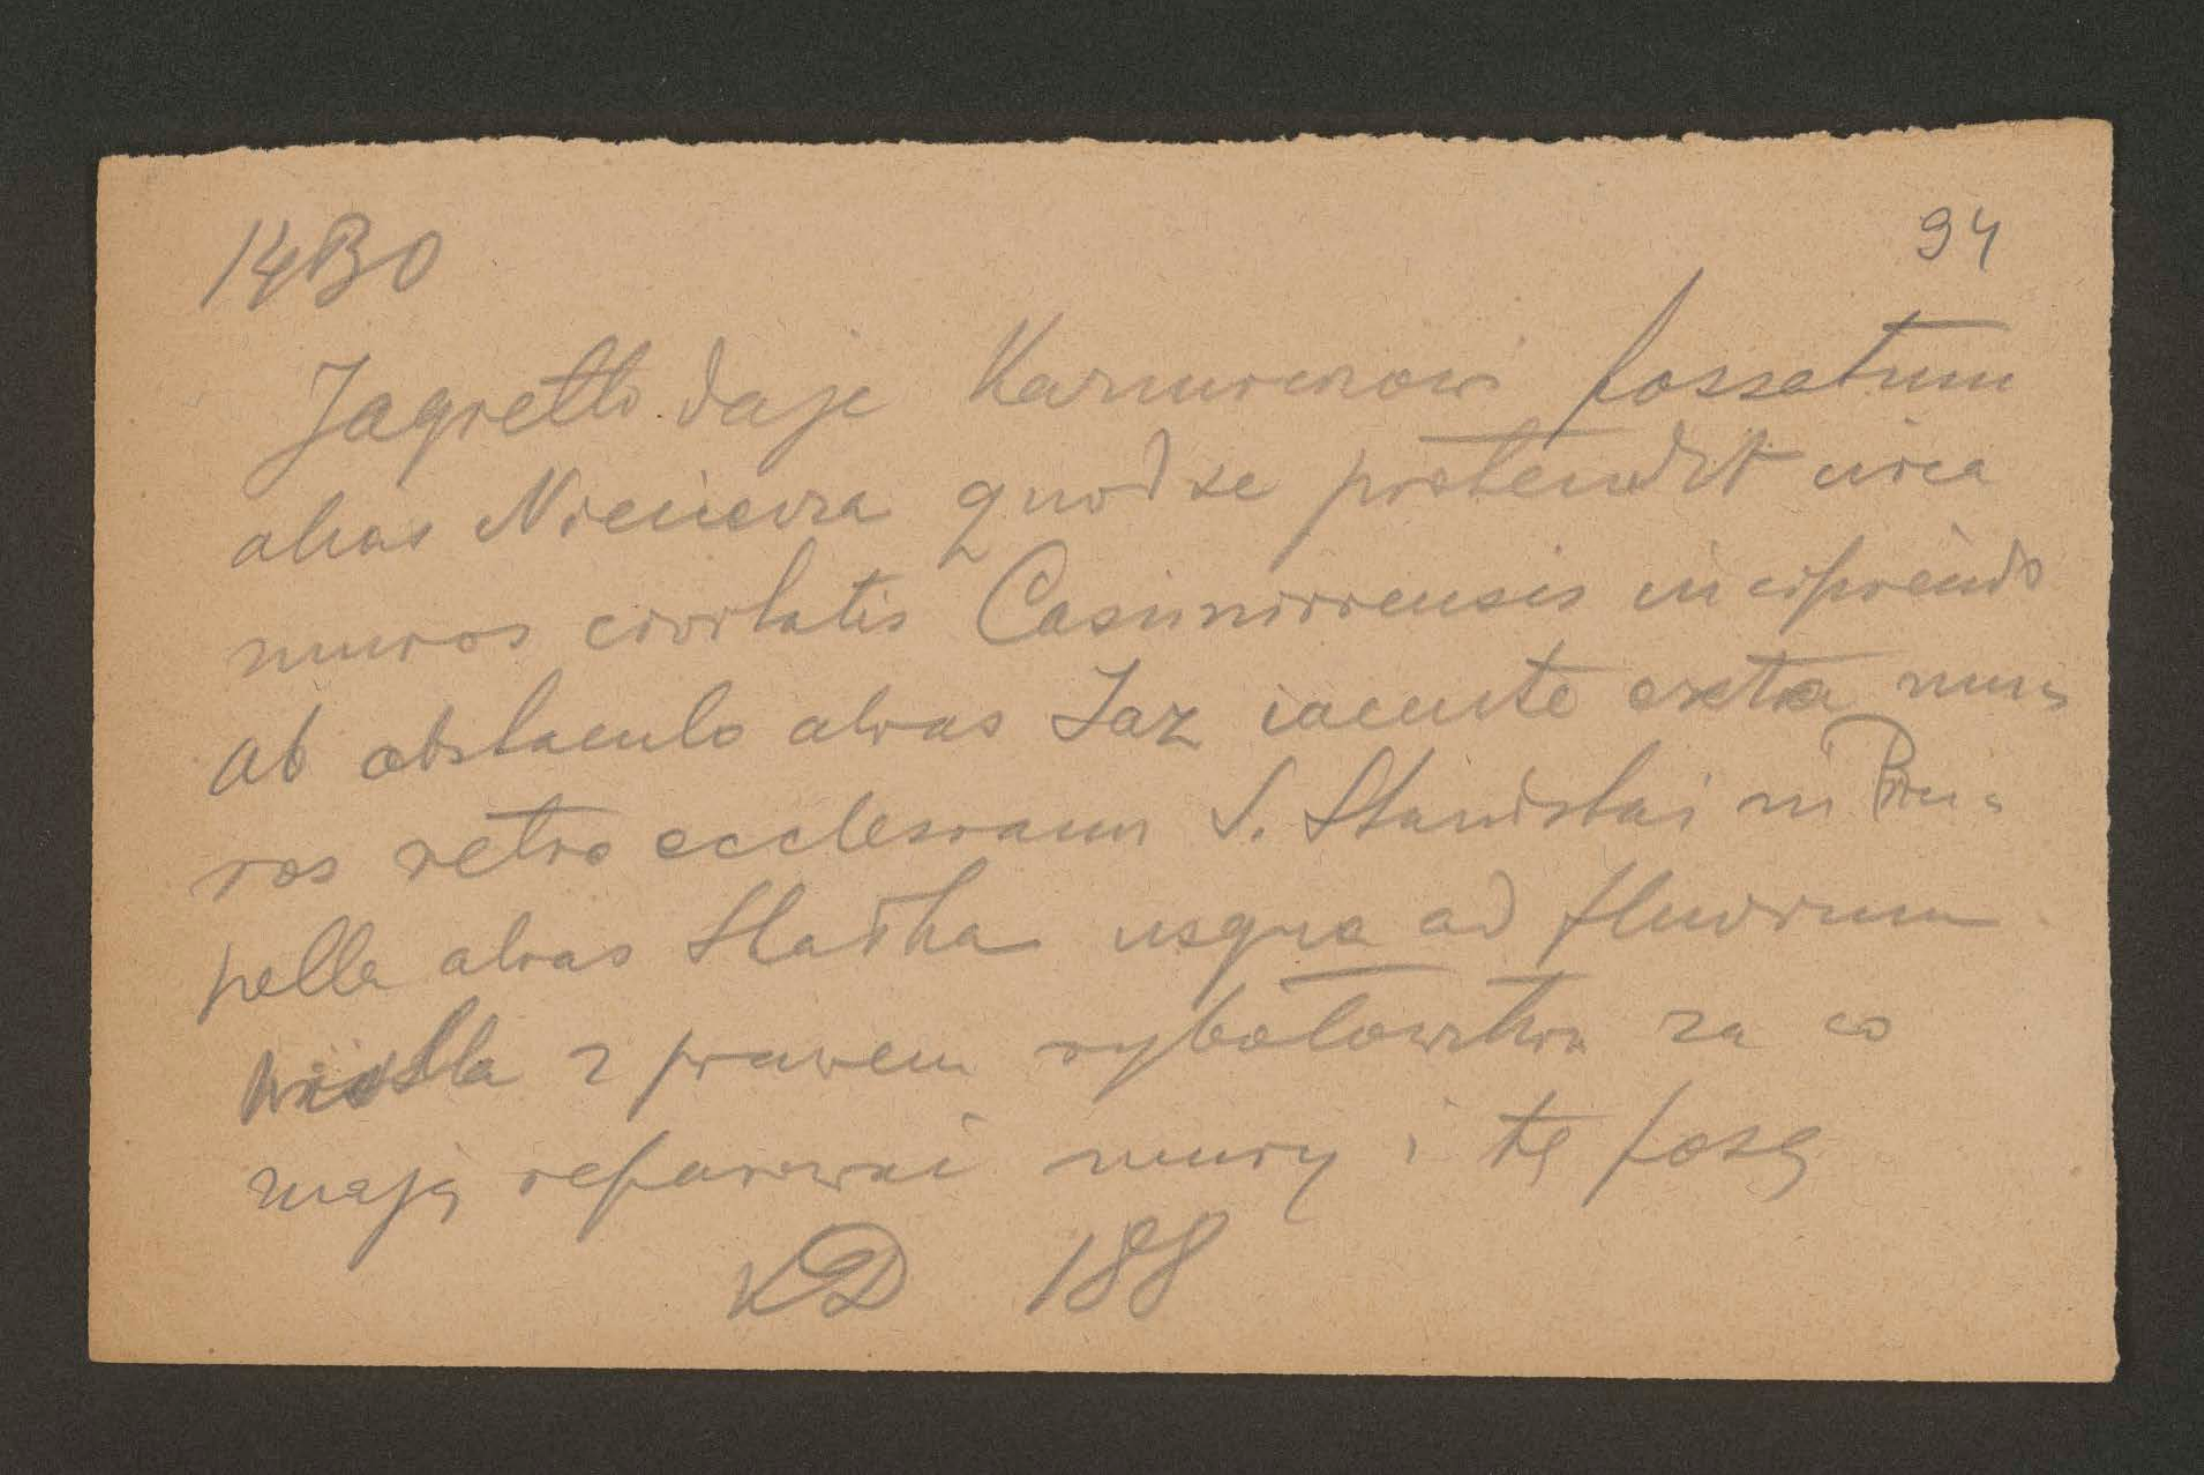 1430
94
Jagiełło daje Kazimierzowi fossatum
alias Nieciecza quod se protendit circa
muros civitatis Casimiriensis incipiendo
ab obstaculo alias Jaz iacente extra mu=
ros retro ecclesiam S. Stanislai in Ru=
pella alias Skałka usque ad fluvium
Wisła z prawem rybołowstwa za co
mają reparować mury i tę fosę
KD 188